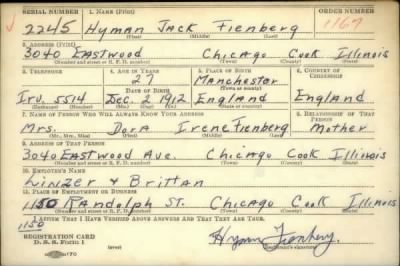 SERIAL NUMBER 1. NAME (Print) ORDER NUMBER
2245 Hyman Jack Fienberg 1167
(First) (Middle) (Last)
2. ADDRESS (Print)
3040 Eastwood Chicago Cook Illinois
(Number and street or R. F. D. number) (Town) (County) (State)
3. TELEPHONE 4. AGE IN YEARS 5. PLACE OF BIRTH 6. COUNTRY OF CITIZENSHIP
27 Manchester
DATE OF BIRTH (Town or county)
Irv. 5514 Dec 2 1912 England England
(Exchange) (No.) (Mo.) (Day) (Yr.) (State or country)
7. NAME OF PERSON WHO WILL ALWAYS KNOW YOUR ADDRESS 8. RELATIONSHIP OF THAT PERSON
Mrs. Dora Irene Fienberg Mother
(Mr., Mrs., Miss) (First) (Middle) (Last)
9. ADDRESS OF THAT PERSON
3040 Eastwood Ave. Chicago Cook Illinois
(Number and street or R. F. D. number) (Town) (County) (State)
10. EMPLOYER'S NAME
Winzer & Brittan
11. PLACE OF EMPLOYMENT OR BUSINESS
1150 Randolph St. Chicago Cook Illinois
(Number and street or R. F. D. number) (Town) (County) (State)
1150 I AFFIRM THAT I HAVE VERIFIED ABOVE ANSWERS AND THAT THEY ARE TRUE.
REGISTRATION CARD
D. S. S. Form 1 (over) Hyman Fienberg
(Registrant's signature)